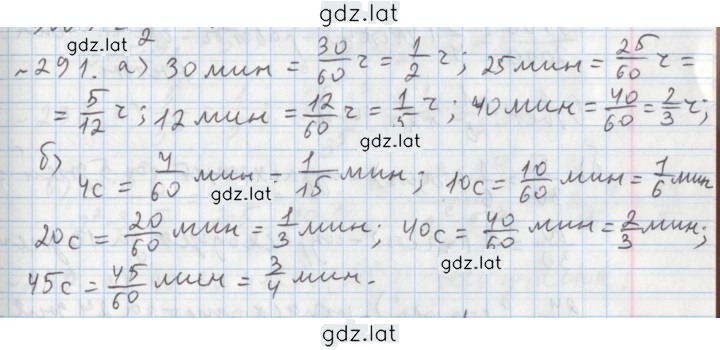 gdz.lat
2
№291. а) 30 мин = 30/60 ч = 1/2 ч; 25 мин = 25/60 ч =
= 5/12 ч; 12 мин = 12/60 ч = 1/5 ч; 40 мин = 40/60 = 2/3 ч;
gdz.lat
б)
4с = 4/60 мин = 1/15 мин; 10с = 10/60 мин = 1/6 мин
gdz.lat
20с = 20/60 мин = 1/3 мин; 40с = 40/60 мин = 2/3 мин;
gdz.lat
45с = 45/60 мин = 3/4 мин.
gdz.lat